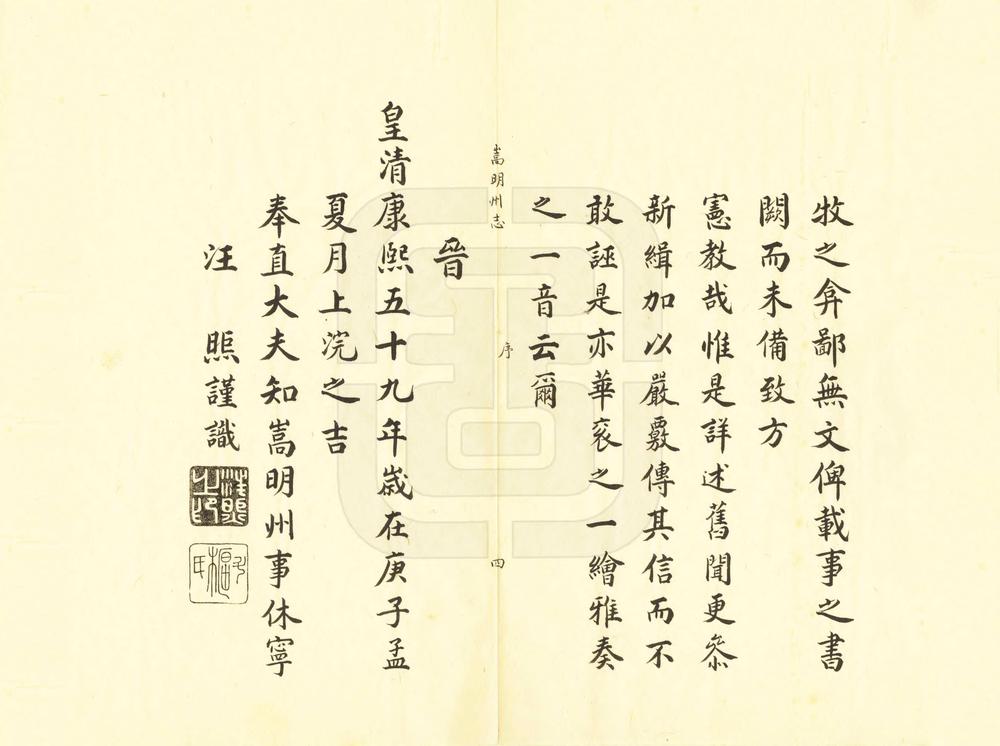 牧之弇鄙無文俾載事之書
闕而未備致方
憲教哉惟是詳述舊聞更叅
新緝加以嚴覈傳其信而不
敢誣是亦華衮之一繪雅奏
之一音云爾
嵩明州志
序
四
晉
皇清康熙五十九年歲在庚子孟
夏月上浣之吉
奉直大夫知嵩明州事休寧
汪 謹識